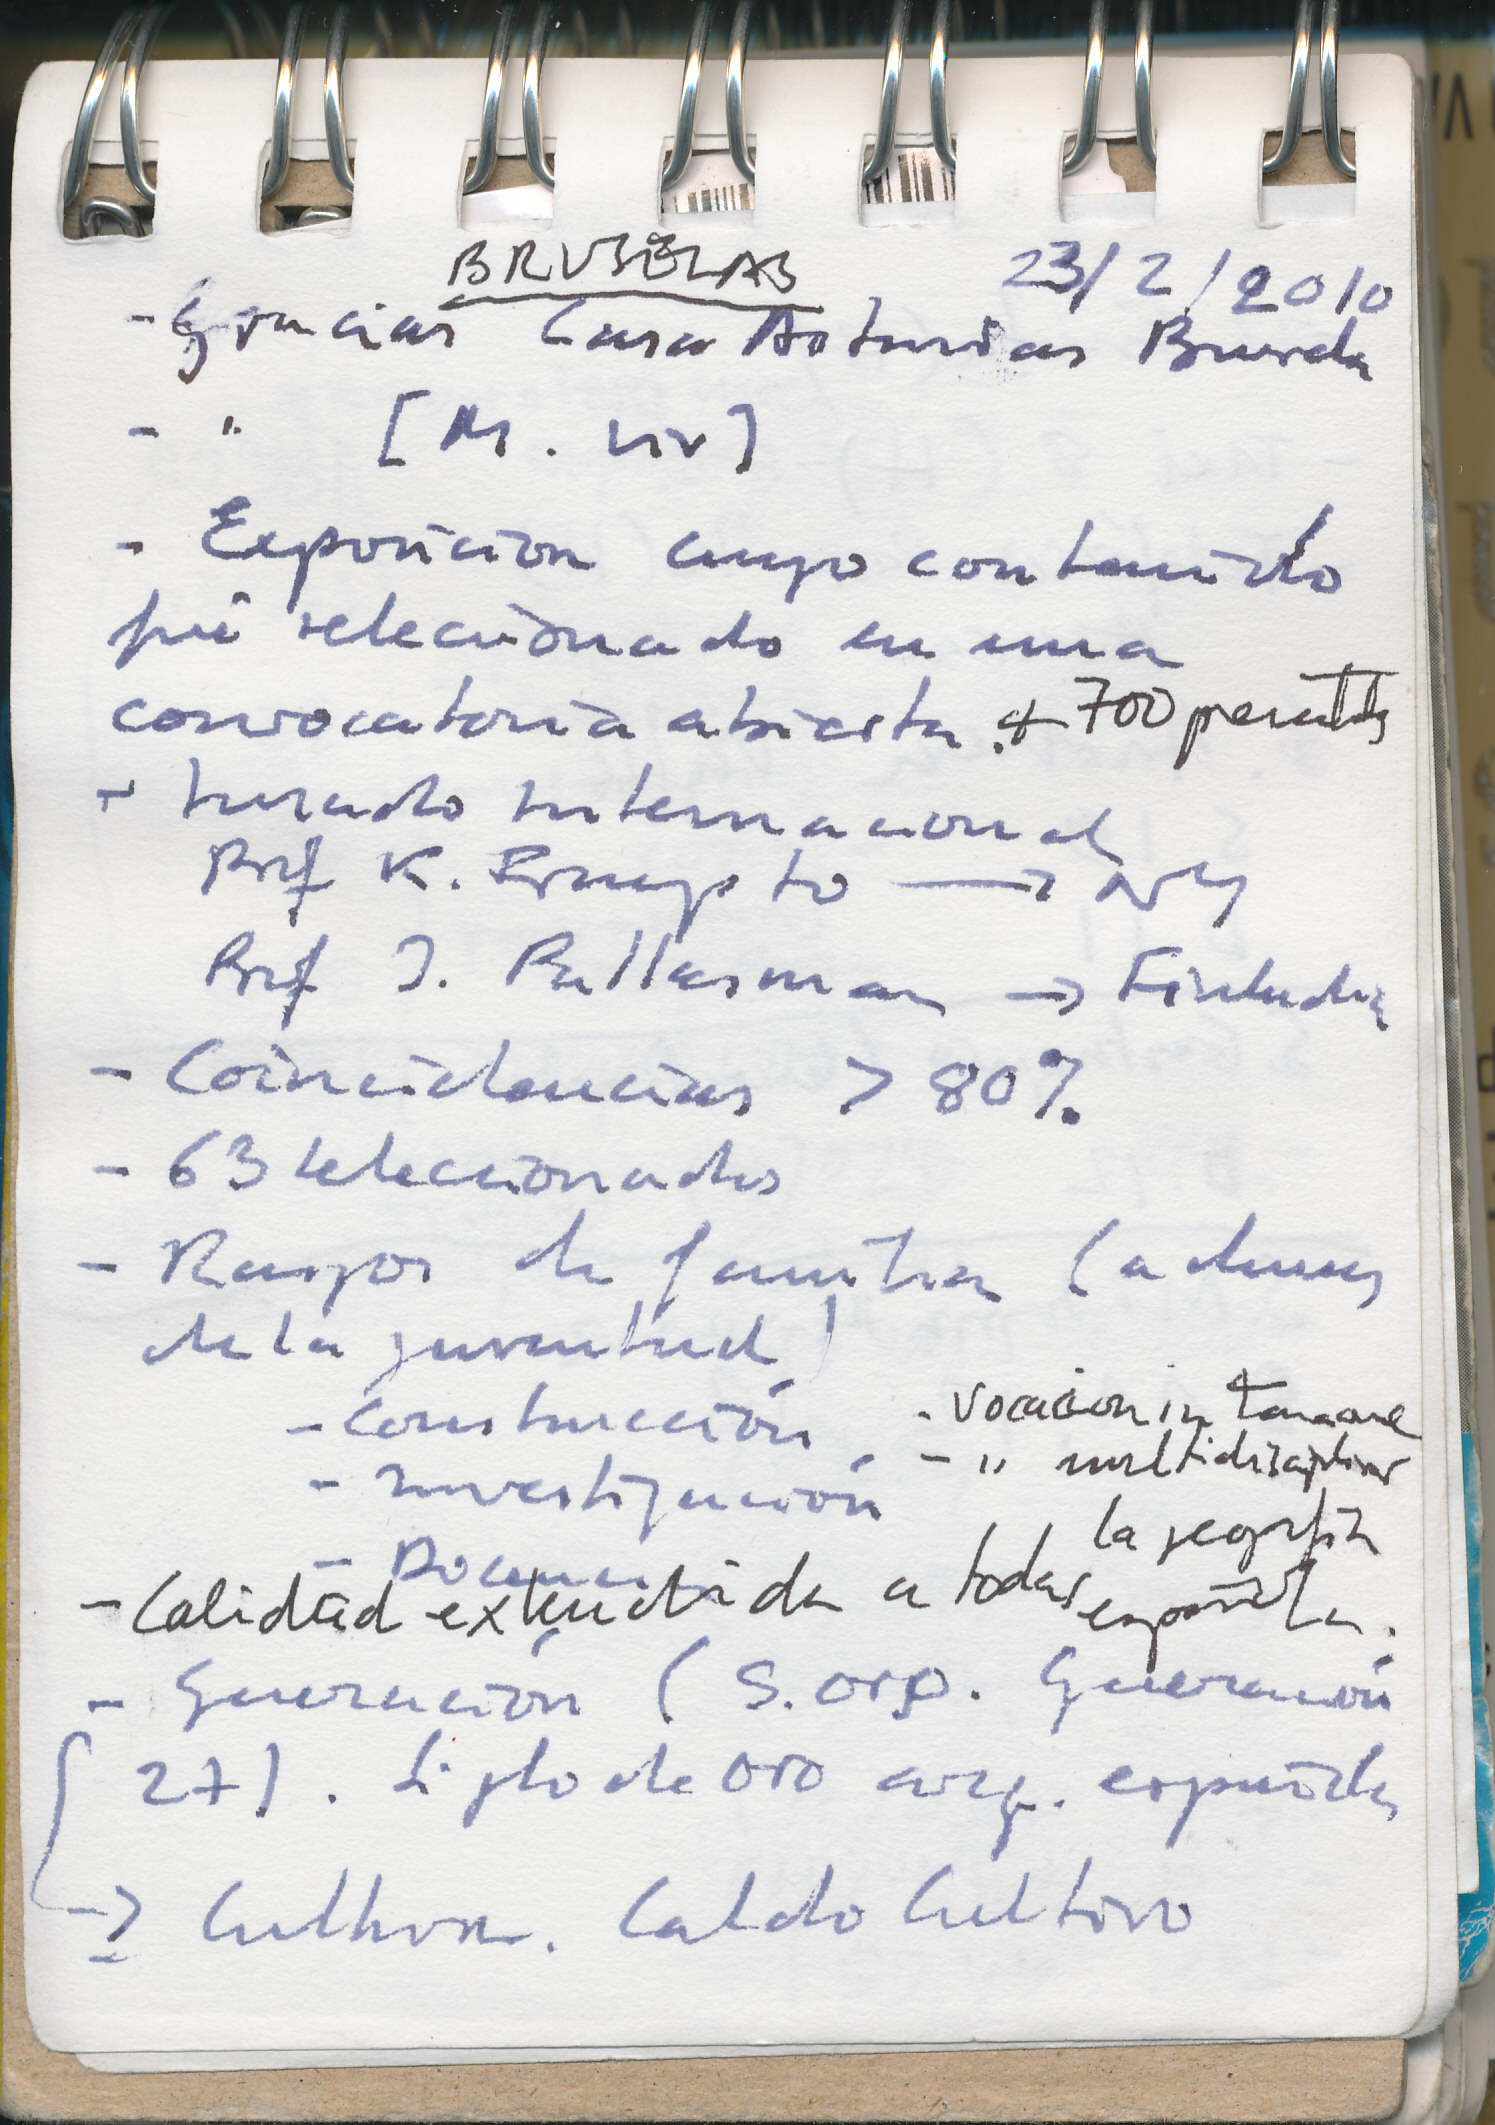 BRUSELAS 23/2/2010
- Gracias Casa Asturias Bruselas
- " [M. Viv]
- Exposición cuyo contenido
fué seleccionado en una
convocatoria abierta. + 700 presentados
- Jurado Internacional
Prof K. Frampton → NY
Prof J. Pallasmaa → Finlandia
- Coincidencias > 80%
- 63 seleccionados
- Rasgos de familia (además
de la juventud)
- Construcción
- Vocación
- Investigación
- " multidisciplinar
- Document
la geografía
- Calidad extendida a toda española.
- Generación (S. Oro. Generación
27). Siglo de Oro arq. española
→ Cultura. Caldo Cultivo